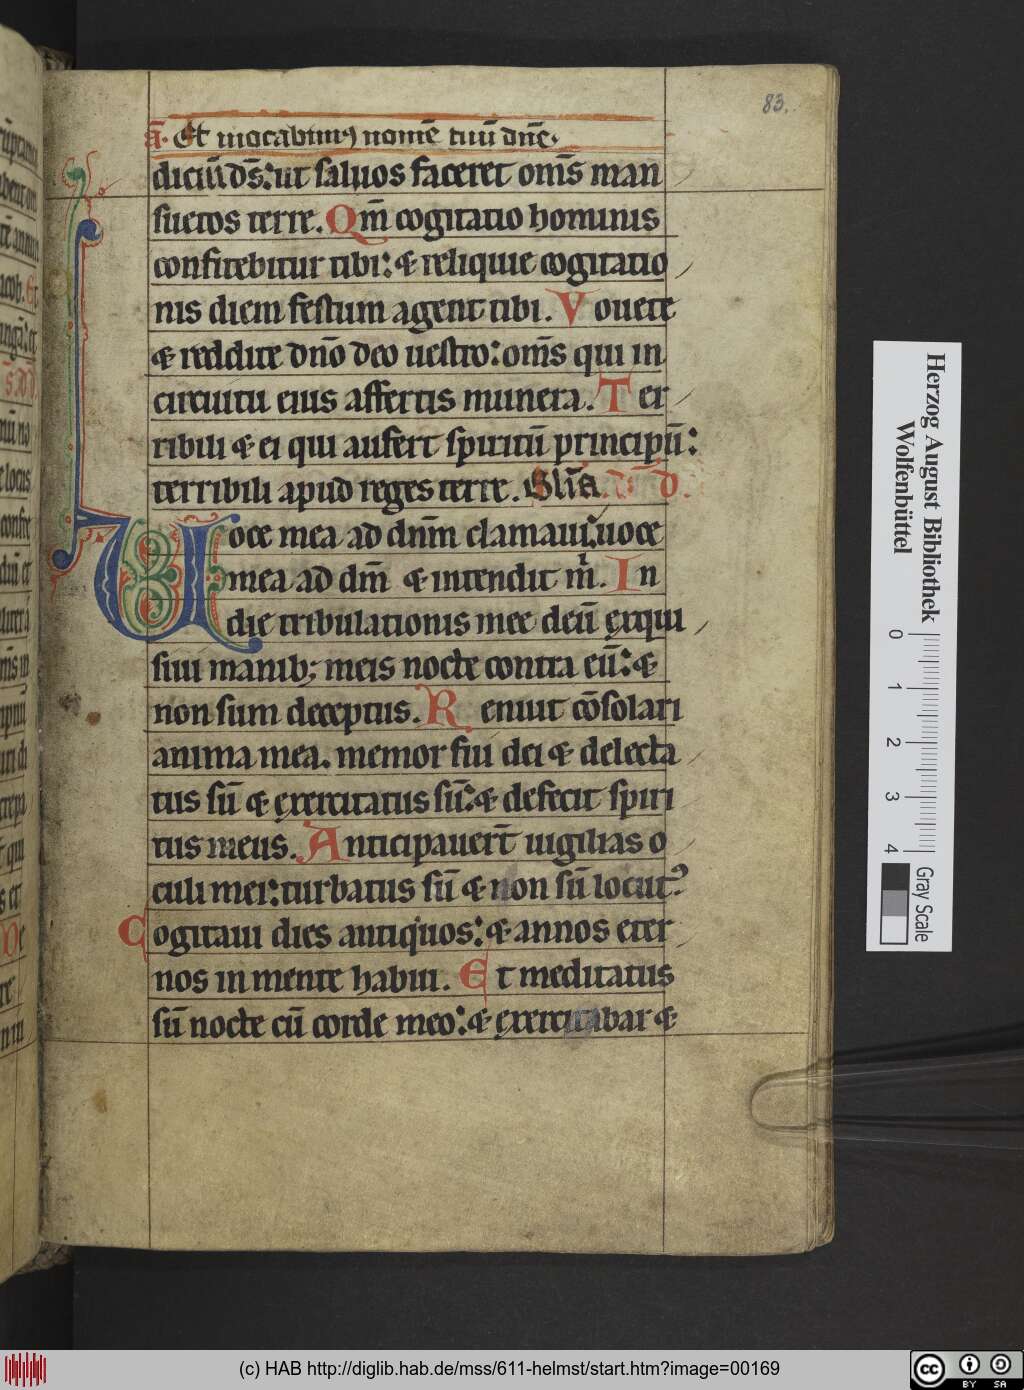 83.
a̅. Et inuocabimꝰ nome̅ tuu̅ dn̅e.
diciu̅ ds̅: ut saluos faceret om̅s man
suetos terre. Qm̅ cogitatio hominis
confitebitur tibi: & reliquie cogitatio
nis diem festum agent tibi. Vouete
& reddite dn̅o deo uestro: om̅s qui in
circuitu eius affertis munera. Ter
ribili & ei qui aufert spiritu̅ principu̅:
terribili apud reges terre. Gl̅ia.
Uoce mea ad dn̅m clamaui: uoce
mea ad dm̅ & intendit m̅. In
die tribulationis mee deu̅ exqui
siui manib; meis nocte contra eu̅: &
non sum deceptus. Renuit co̅solari
anima mea. memor fui dei & delecta
tus su̅ & exercitatus su̅: & defecit spiri
tus meus. Anticipauer̅t uigilias o
culi mei: turbatus su̅ & non su̅ locutꝰ
Cogitaui dies antiquos: & annos eter
nos in mente habui. Et meditatus
su̅ nocte cu̅ corde meo: & exercitabar &
Herzog August Bibliothek
Wolfenbüttel
0 1 2 3 4
Gray Scale
(c) HAB http://diglib.hab.de/mss/611-helmst/start.htm?image=00169
cc BY SA